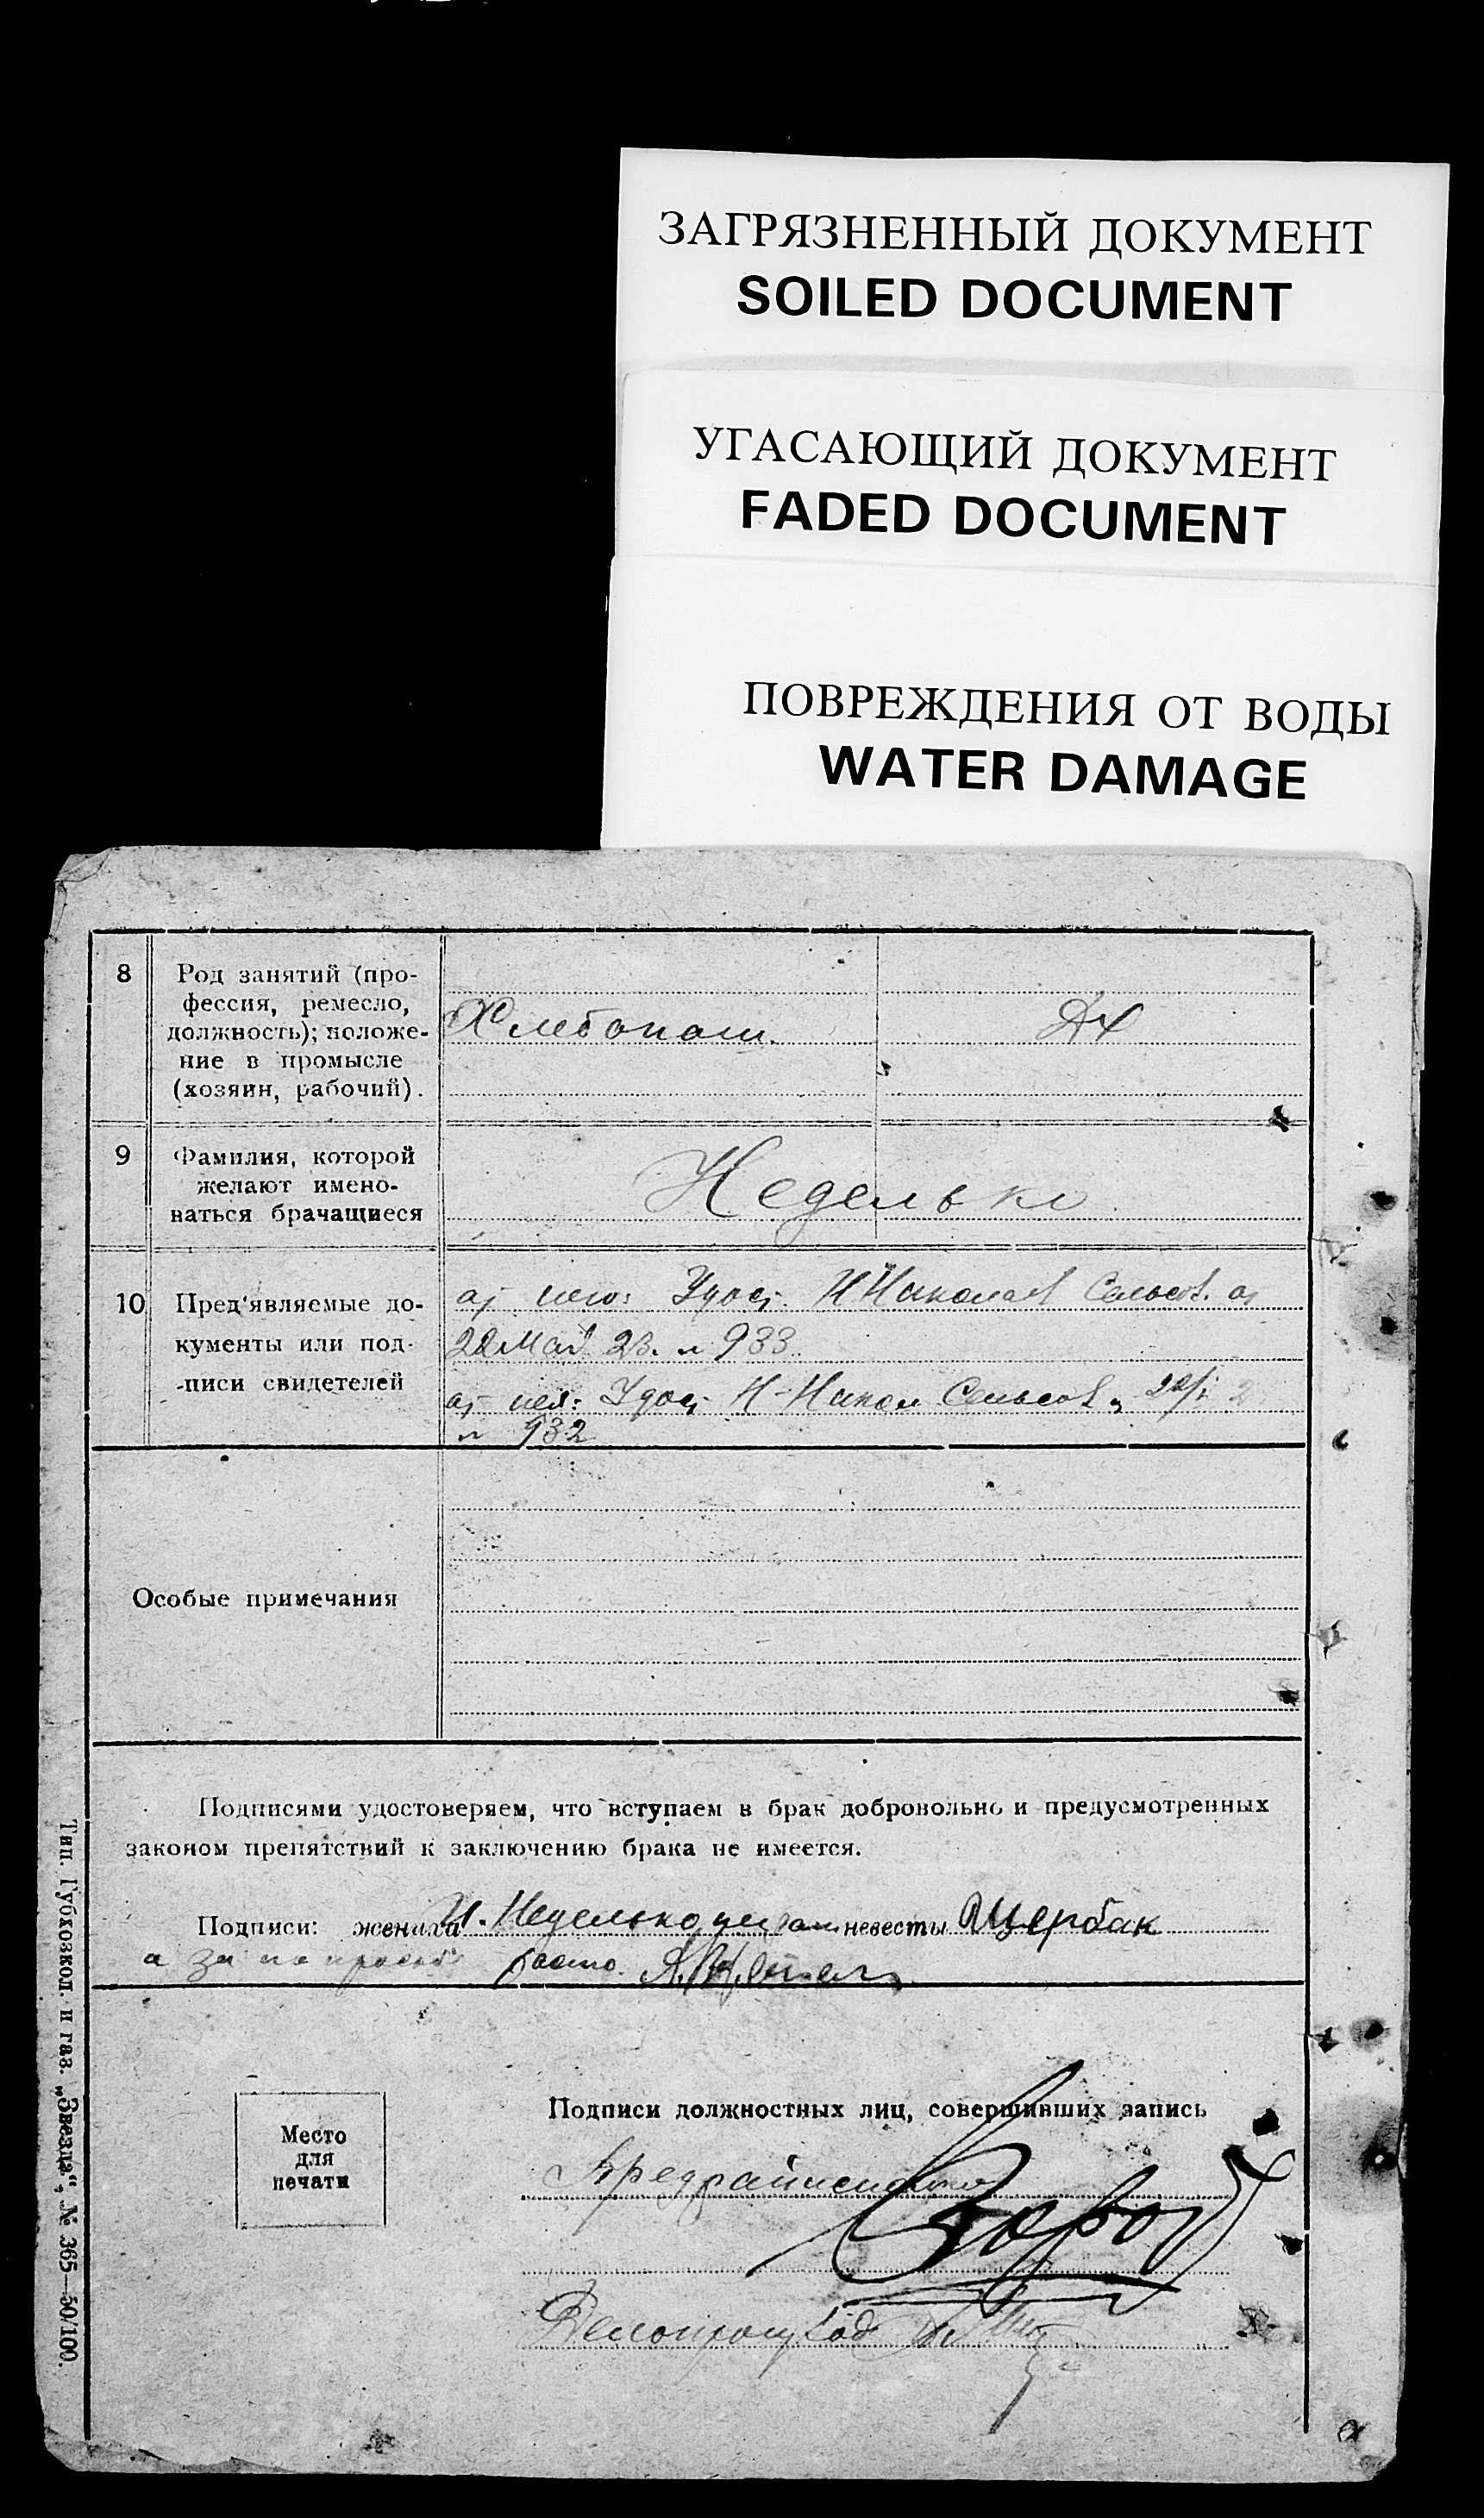 ЗАГРЯЗНЕННЫЙ ДОКУМЕНТ
SOILED DOCUMENT
УГАСАЮЩИЙ ДОКУМЕНТ
FADED DOCUMENT
ПОВРЕЖДЕНИЯ ОТ ВОДЫ
WATER DAMAGE
8 Род занятий (про-
фессия, ремесло,
должность); положе-
ние в промысле
(хозяин, рабочий).
Хлебопаш. ДХ
9 Фамилия, которой
желают имено-
ваться брачащиеся
Неделько
10 Пред'являемые до-
кументы или под-
-писи свидетелей
Удос. Н Николаев Сельсов.
22 Мая 23. 933
Удос. Н-Никол Сельсов
932
Особые примечания
Подписями удостоверяем, что вступаем в брак добровольно и предусмотренных
законом препятствий к заключению брака не имеется.
Подписи: жениха И. Неделько невесты Щербак
а за
Подписи должностных лиц, совершивших запись
Предрайисполкома
Делопроизвод
Место
для
печати
Тип. Губкозкол. и газ. „Звезда“, № 365—50/100.